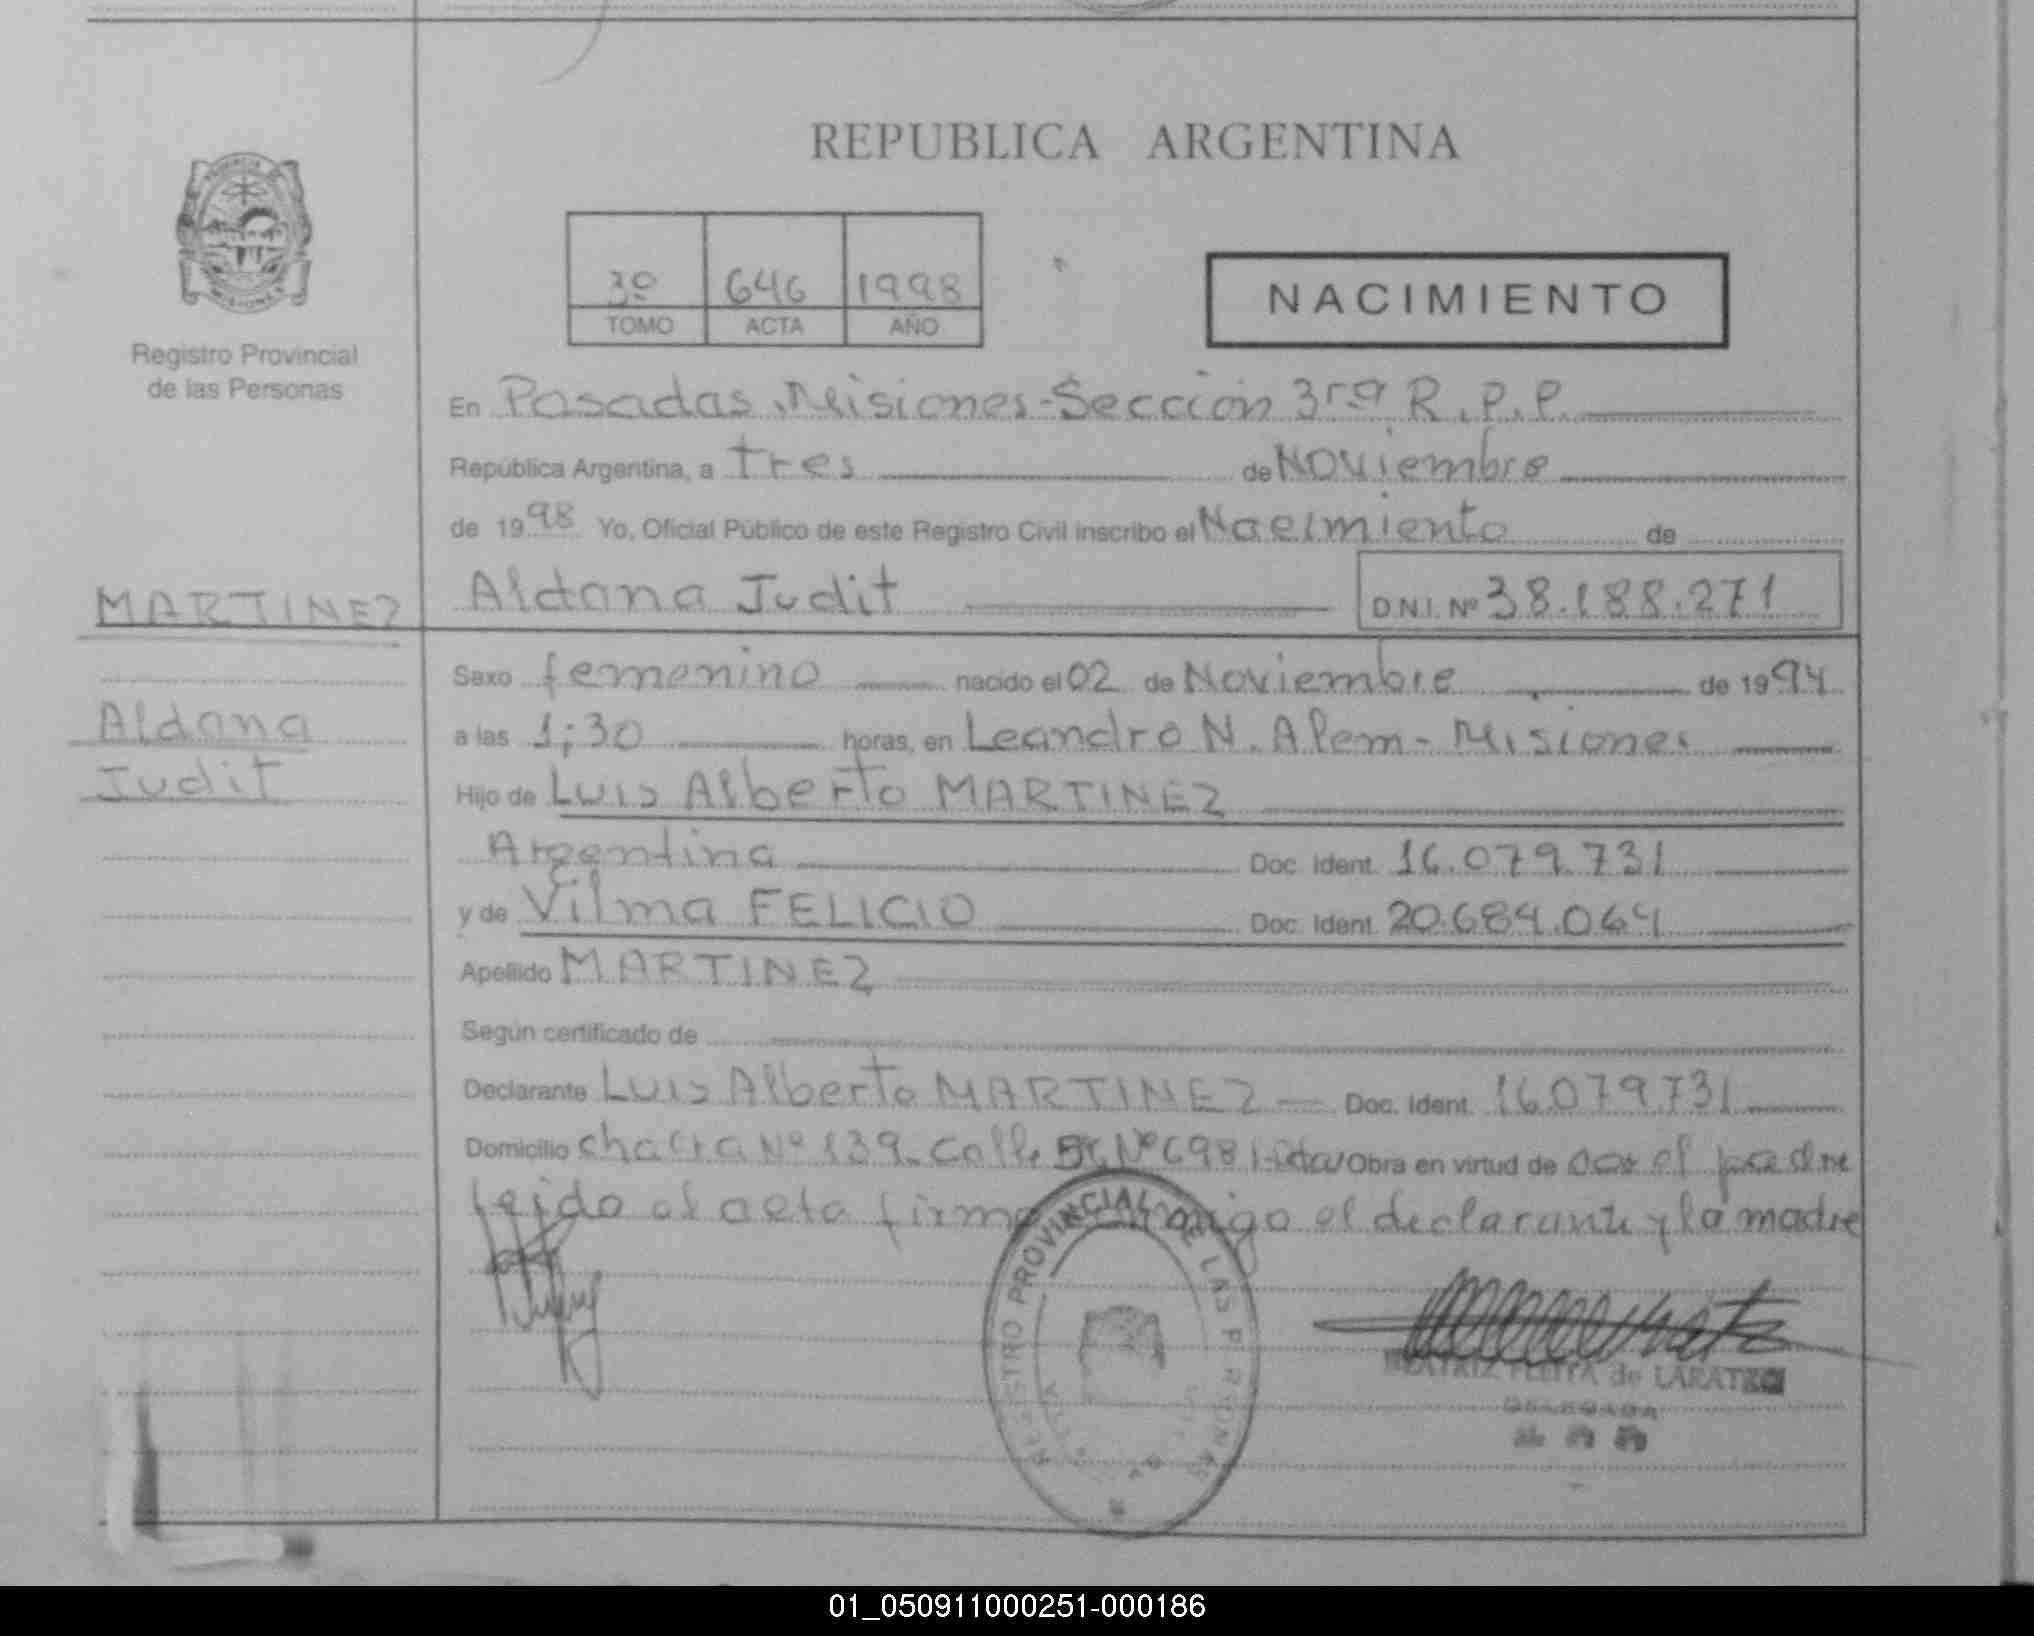 REPUBLICA ARGENTINA
PROVINCIA DE
MISIONES
Registro Provincial
de las Personas
3º 646 1998
TOMO ACTA AÑO
NACIMIENTO
En Posadas, Misiones-Sección 3ra R.P.P.
República Argentina, a tres de Noviembre
de 1998 Yo, Oficial Público de este Registro Civil inscribo el Nacimiento de
MARTINEZ
Aldana Judit D.N.I. Nº 38.188.271
Aldana
Judit
Sexo femenino nacido el 02 de Noviembre de 1994
a las 1;30 horas, en Leandro N. Alem - Misiones
Hijo de Luis Alberto MARTINEZ
Argentina Doc. Ident. 16.079.731
y de Vilma FELICIO Doc. Ident. 20.684.064
Apellido MARTINEZ
Según certificado de
Declarante Luis Alberto MARTINEZ - Doc. Ident. 16.079.731
Domicilio chacra Nº 139 - Calle Nº 698 Obra en virtud de el padre
leido el acta firma el declarante y la madre
REGISTRO PROVINCIAL DE LAS PERSONAS
BEATRIZ FLEITA de LARATRO
DELEGADA
01_050911000251-000186